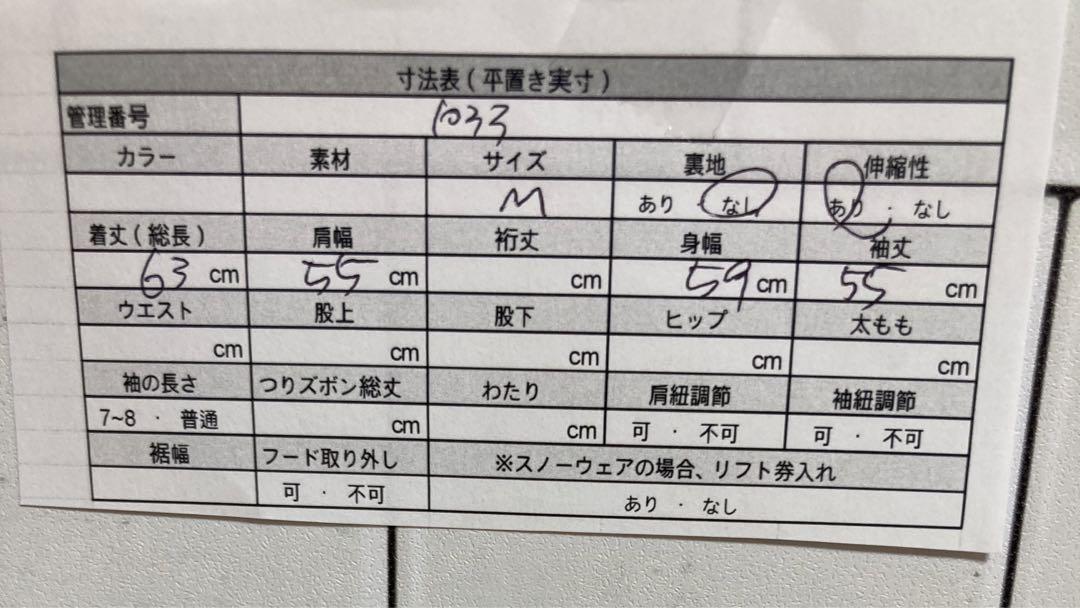 寸法表(平置き実寸)
管理番号 1033
カラー 素材 サイズ 裏地 伸縮性
M あり ・ なし あり ・ なし
着丈(総長) 肩幅 裄丈 身幅 袖丈
63 cm 55 cm cm 59 cm 55 cm
ウエスト 股上 股下 ヒップ 太もも
cm cm cm cm cm
袖の長さ つりズボン総丈 わたり 肩紐調節 袖紐調節
7~8 ・ 普通 cm cm 可 ・ 不可 可 ・ 不可
裾幅 フード取り外し ※スノーウェアの場合、リフト券入れ
可 ・ 不可 あり ・ なし